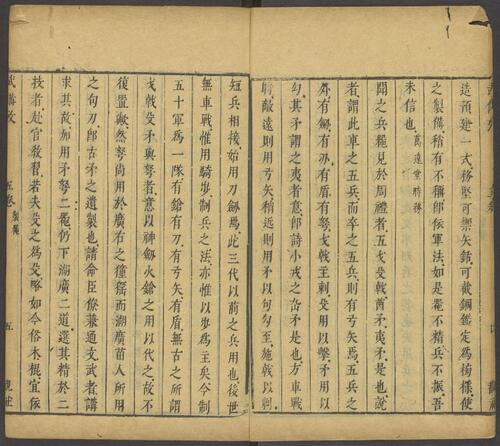 造預建一式務堅可禦矢鋭可截鋼鑑定爲榜樣使
之製備稍有不稱郎依軍法如是噐不精兵不振吾
未信也
聞之兵噐見於周禮者五戈殳戟酋矛夷矛是也說
者謂此車之五兵而步之五兵則有弓矢爲五兵之
外有劔有刃有盾有弩戈戟主刺殳用以擊矛用以
勾其矛謂之夷者意郎詩小戎之厹矛是也方車戰
時敵遠則用弓矢稍近則用矛以句勾至施戟以刺
短兵相接始用刀劔焉此三代以前之兵用也後世
無車戰惟用騎步制兵之法亦惟以步爲主矣今制
五十軍爲一隊有鎗有刀有弓矢有盾無古之所謂
戈戟殳矛與弩者意以神劔火鎗之用以代之故不
復置歟然弩尚用於廣右之獞猺而湖廣苗人所用
之句刀郎古矛之遺製也請命臣僚兼通文武者講
求其故加用矛弩二噐仍下湖廣二道選其精於二
技者赴官教習若夫殳之爲殳略如今俗木棍宜依
五卷
五